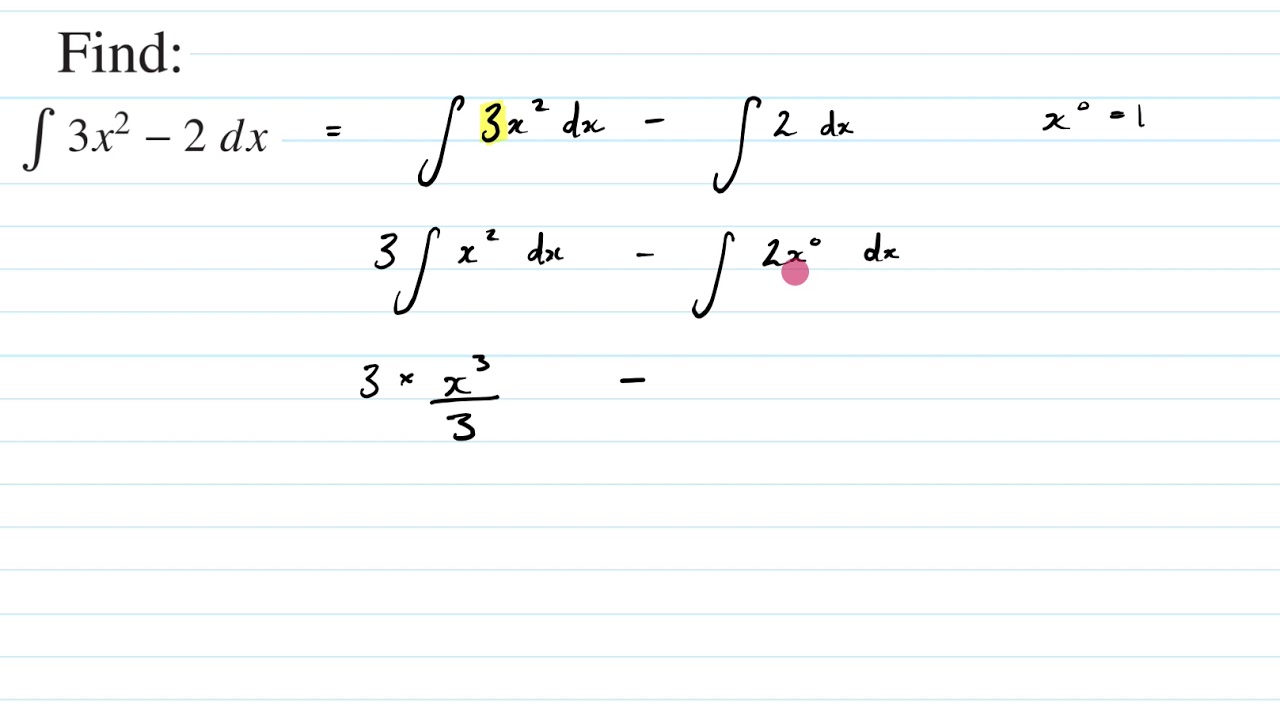 Find:
∫ 3x² − 2 dx = ∫ 3x² dx − ∫ 2 dx x⁰ = 1
3 ∫ x² dx − ∫ 2x⁰ dx
3 × x³/3 −